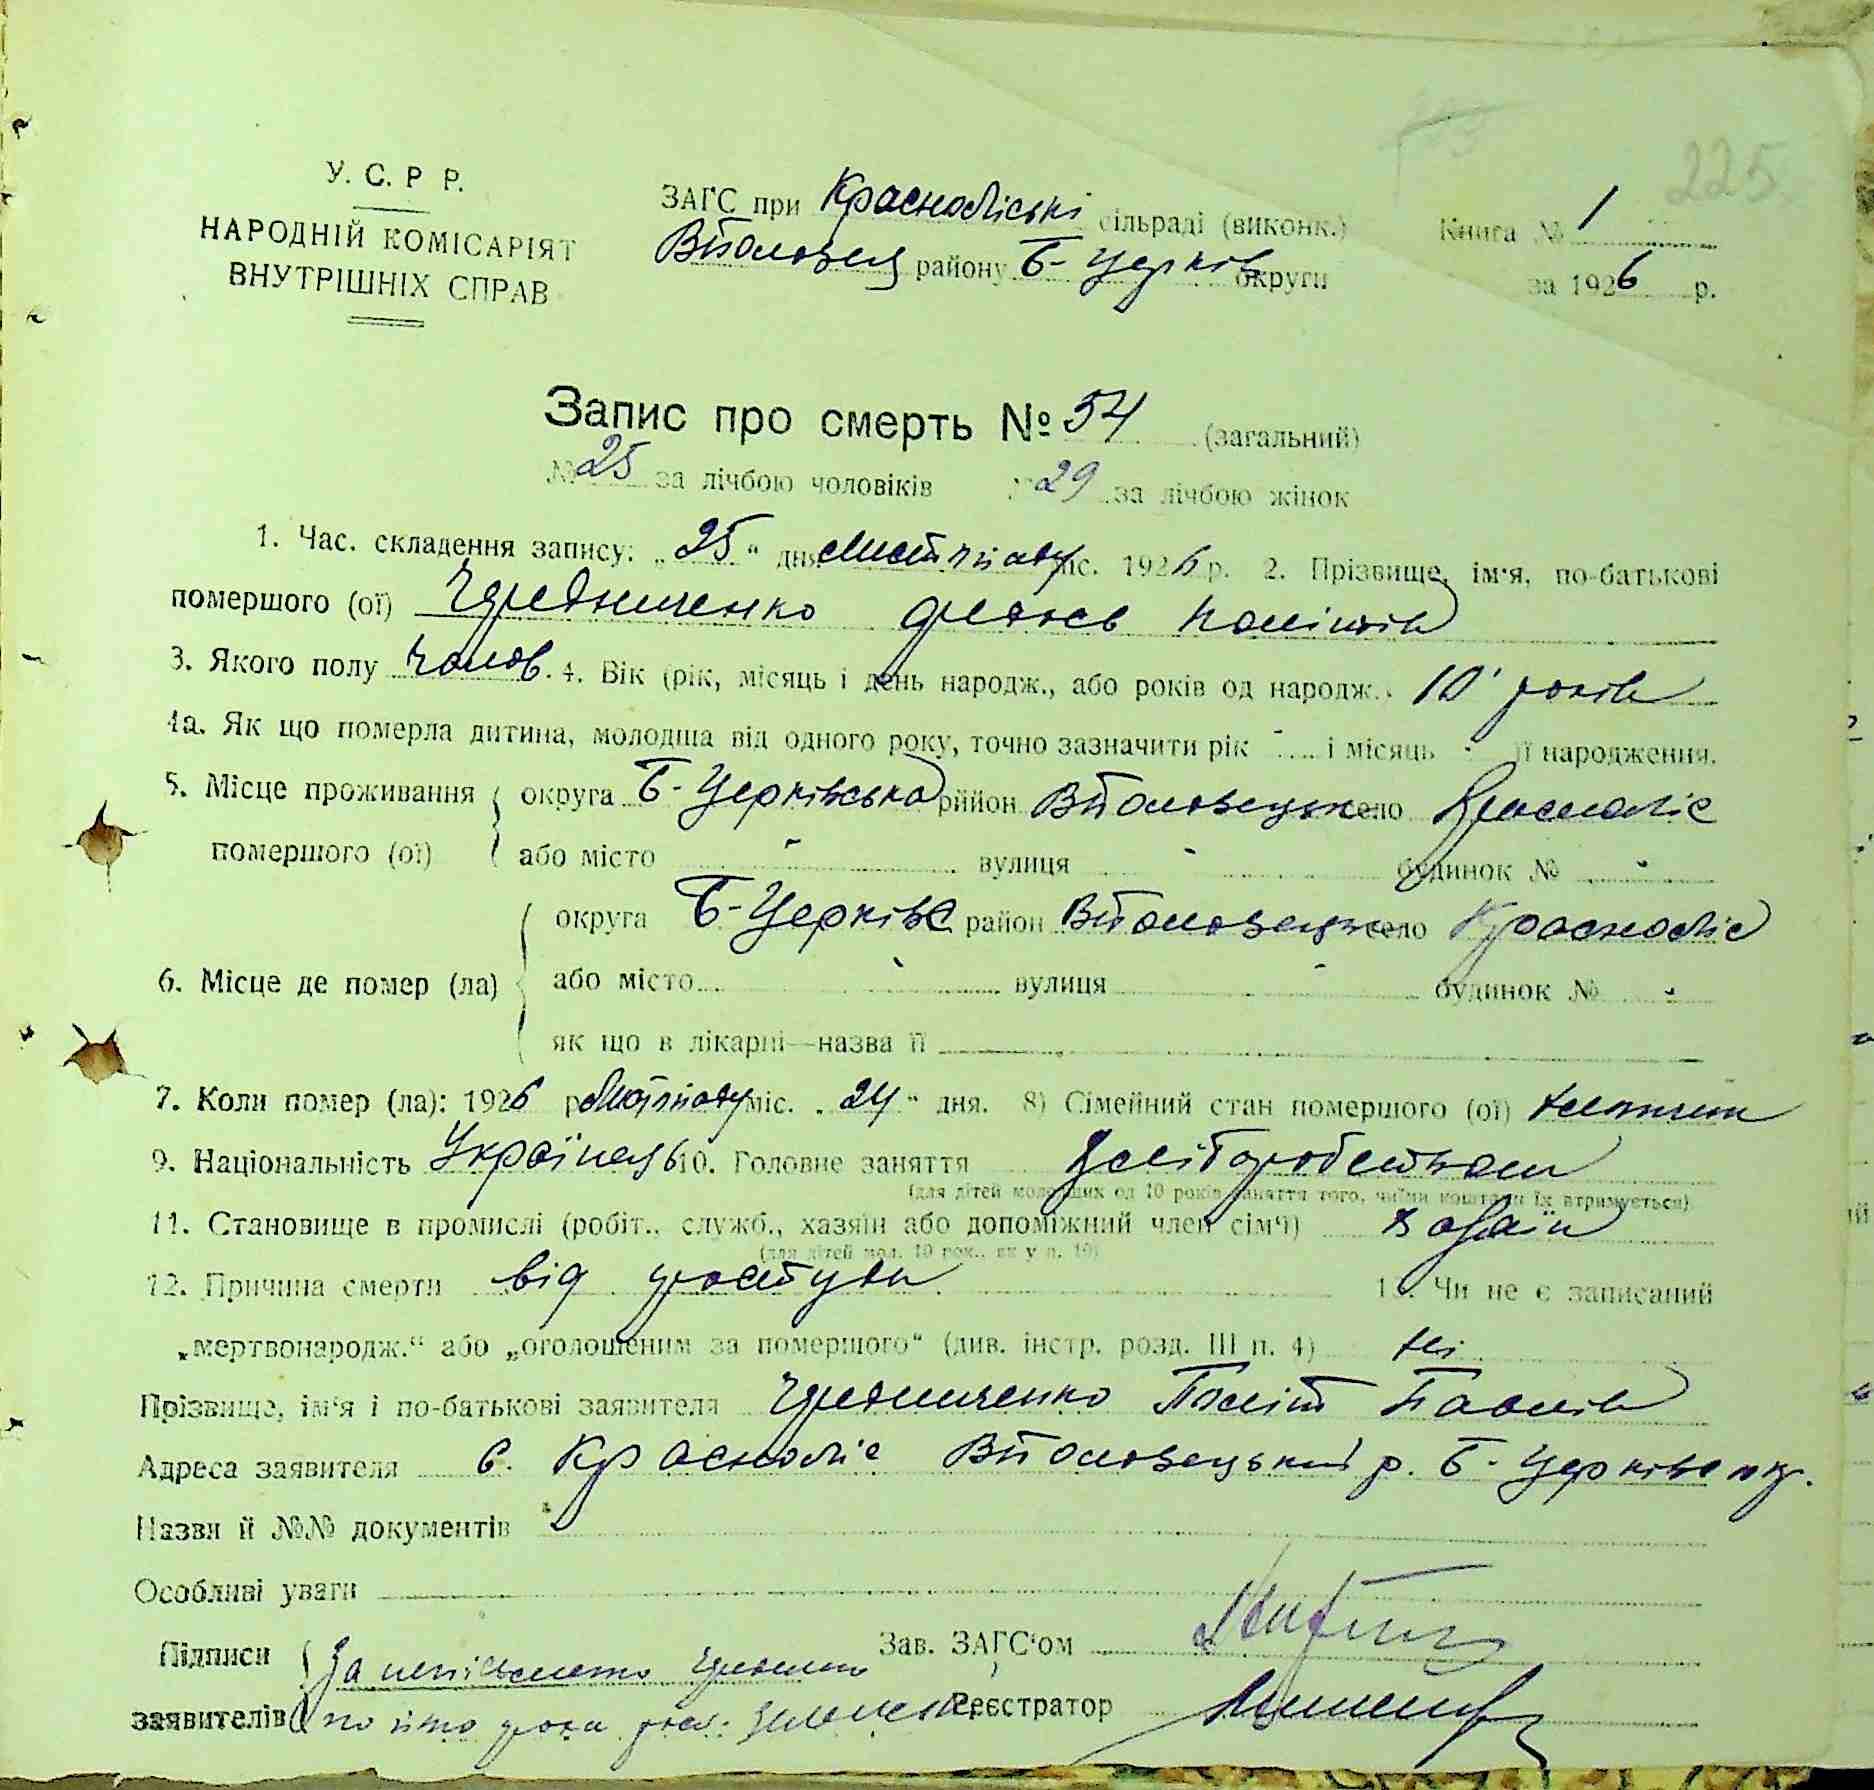 225
У. С. Р Р.
НАРОДНІЙ КОМІСАРІЯТ
ВНУТРІШНІХ СПРАВ
ЗАГС при Красноліські сільраді (виконк.)
району Б-Церків округи
Книга № 1
за 1926 р.
Запис про смерть № 54 (загальний)
№ 25 за лічбою чоловіків № 29 за лічбою жінок
1. Час. складення запису: „25" дня листпаду міс. 1926 р. 2. Прізвище, ім'я, по-батькові
помершого (ої) Чередниченко Федось
3. Якого полу чолов. 4. Вік (рік, місяць і день народж., або років од народж. 10 років
4а. Як що померла дитина, молодша від одного року, точно зазначити рік - і місяць - її народження.
5. Місце проживання помершого (ої) округа Б-Церківська рййон село Красноліс
або місто - вулиця - будинок № -
6. Місце де помер (ла) округа Б-Церківс район село Красноліс
або місто - вулиця - будинок № -
як що в лікарні—назва її
7. Коли помер (ла): 1926 р. міс. „24" дня. 8) Сімейний стан помершого (ої)
9. Національність Українець 10. Головне заняття Хліборобством
(для дітей молодших од 10 років заняття того, чиїми коштами їх втримується)
11. Становище в промислі (робіт., служб., хазяїн або допоміжний член сім'ї) хазяїн
(для дітей мол. 10 рок., як у п. 10)
12. Причина смерти від простуди 13. Чи не є записаний
„мертвонародж." або „оголошеним за помершого" (див. інстр. розд. III п. 4) ні
Прізвище, ім'я і по-батькові заявителя Чередниченко Павлів
Адреса заявителя с. Красноліс р. Б-Церківс окр.
Назви й №№ документів
Особливі уваги
Підписи заявителів За
Зав. ЗАГС'ом
Реєстратор